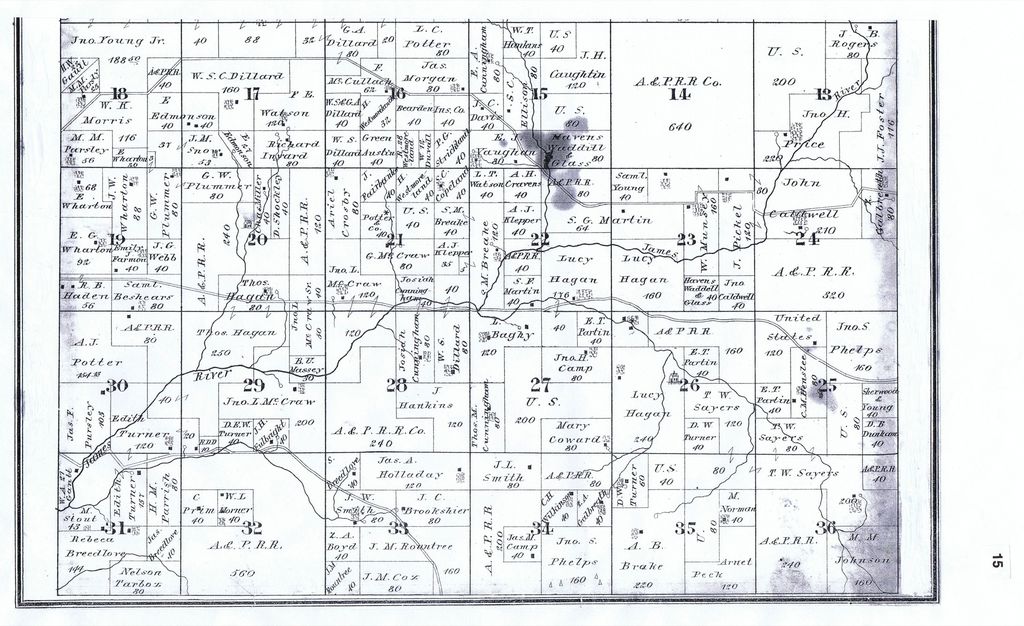 Jno. Young Jr.
188 50
18
W. K.
Morris
A.&P.R.R.
40
E
Edmonson
40 40
M. M.
Parsley
56
116
E
Wharton
37
J. M.
Snow
53
40
88
32
W.S.C. Dillard
160
17
F E.
Watson
120
Edmonson
Richard
Inyard
80
G. A.
Dillard
80
20
L. C.
Potter
80
E.
McCullach
62
Jas.
Morgan
80
16
W.S.&G.A.
Dillard
40
Bearden
40
Ins. Co.
40
W. S.
Dillard
40
Green
Austin
40
Strickland
40
E. A.
Cunningham
80
W. T.
Hankins
40
U S
40
J. H.
Caughtin
120
15
S. C.
Ellison
80
J. C.
Davis
40
U. S.
80
E. J.
Vaughan
80
Havens
Waddill
&
Glass
80
A.&P.R.R. Co.
14
640
U. S.
200
13
J B.
Rogers
80
River
Jno H.
Price
220
J.J. Foster
116
68
E
Wharton
J. W.
Wharton
88
G. W.
Plummer
80
19
E. G.
Wharton
92
Emily
Farmon
40
J. G.
Webb
40
R. B.
Haden
56
Saml.
Beshears
80
G. W.
Plummer
80
240
A.&P.R.R.
20
D. Shockley
40
A.&P.R.R.
120
Thos.
Hagan
80
Jno. L.
McCraw Sr.
80
Ariel
Crosby
80
J.
Fairbanks
40
Potter
Co.
40
U. S.
40
S. M.
Breake
40
C. C.
Copeland
40
21
G. McCraw
80
A. J.
Klepper
35
Jno. L.
McCraw
120
Josiah
Cunningham
40
L. T.
Watson
40
A. H.
Cravens
40
A.&P.R.R.
80
A. J.
Klepper
40
S. G. Martin
64
22
S. M. Breake
120
A.&P.R.R.
40
S. F.
Martin
40
Lucy
Hagan
176
Saml.
Young
40
James
23
Lucy
Hagan
160
W. Munsey
160
J. Pickel
120
Havens
Waddill
&
Glass
40
Jno
Caldwell
40
80
John
Caldwell
210
24
A.&P.R.R.
320
Galbreath
80
A.&P.R.R.
80
A. J.
Potter
30
Jas. F.
Pursley
105
Edith
Turner
120
40
James
Thos. Hagan
250
River
29
B. U.
Massey
30
Jno. L. McCraw
200
20
R.D.D
10
D.E.W.
Turner
40
J. H.
Fulbright
40
120
Josiah
Cunningham
80
W. S.
Dillard
80
28
J
Hankins
80
A.&P.R.R. Co.
240
L.
Bagby
120
40
E. T.
Partin
40
Jno. H.
Camp
80
27
U. S.
200
Thos. M.
Cunningham
80
Mary
Coward
80
A.&P.R.R
E. T.
Partin
40
160
26
Lucy
Hagan
240
T. W.
Sayers
D. W
Turner
40
80
United
States
120
Jno. S.
Phelps
160
E. T.
Partin
40
C.M. Henslee
80
25
T. W.
Sayers
80
U. S.
80
Sherwood
&
Young
40
D. B
Dunham
40
M.
Stout
43
31
Rebeca
Breedlove
144
Edith
Turner
67
H. M
Parrish
80
Jas.
Breedlove
40
Nelson
Tarbox
80
C
Prim
40
W. L
Morner
40
32
A.&P. R.R.
560
S.
Breedlove
40
Jas. A.
Holladay
240
J. W.
Smith
20
J. C.
Brookshier
80
33
Z. A.
Boyd
40
J. M. Rountree
J.M
Rountree
40
J. M. Cox
80
160
J. L.
Smith
80
A.&P.R.R
80
C.H
Wilkinson
40
Z. A.
Galbreath
40
34
A.&P. R.R
200
Jas. M.
Camp
40
Jno. S.
Phelps
160
D. W
Turner
80
U. S
40
80
M.
Norman
40
35
U S
80
A. B.
Brake
220
Arnel
Peck
160
T. W. Sayers
A.&P.R.R
40
200
36
A.&P.R.R.
240
M. M.
Johnson
160
15